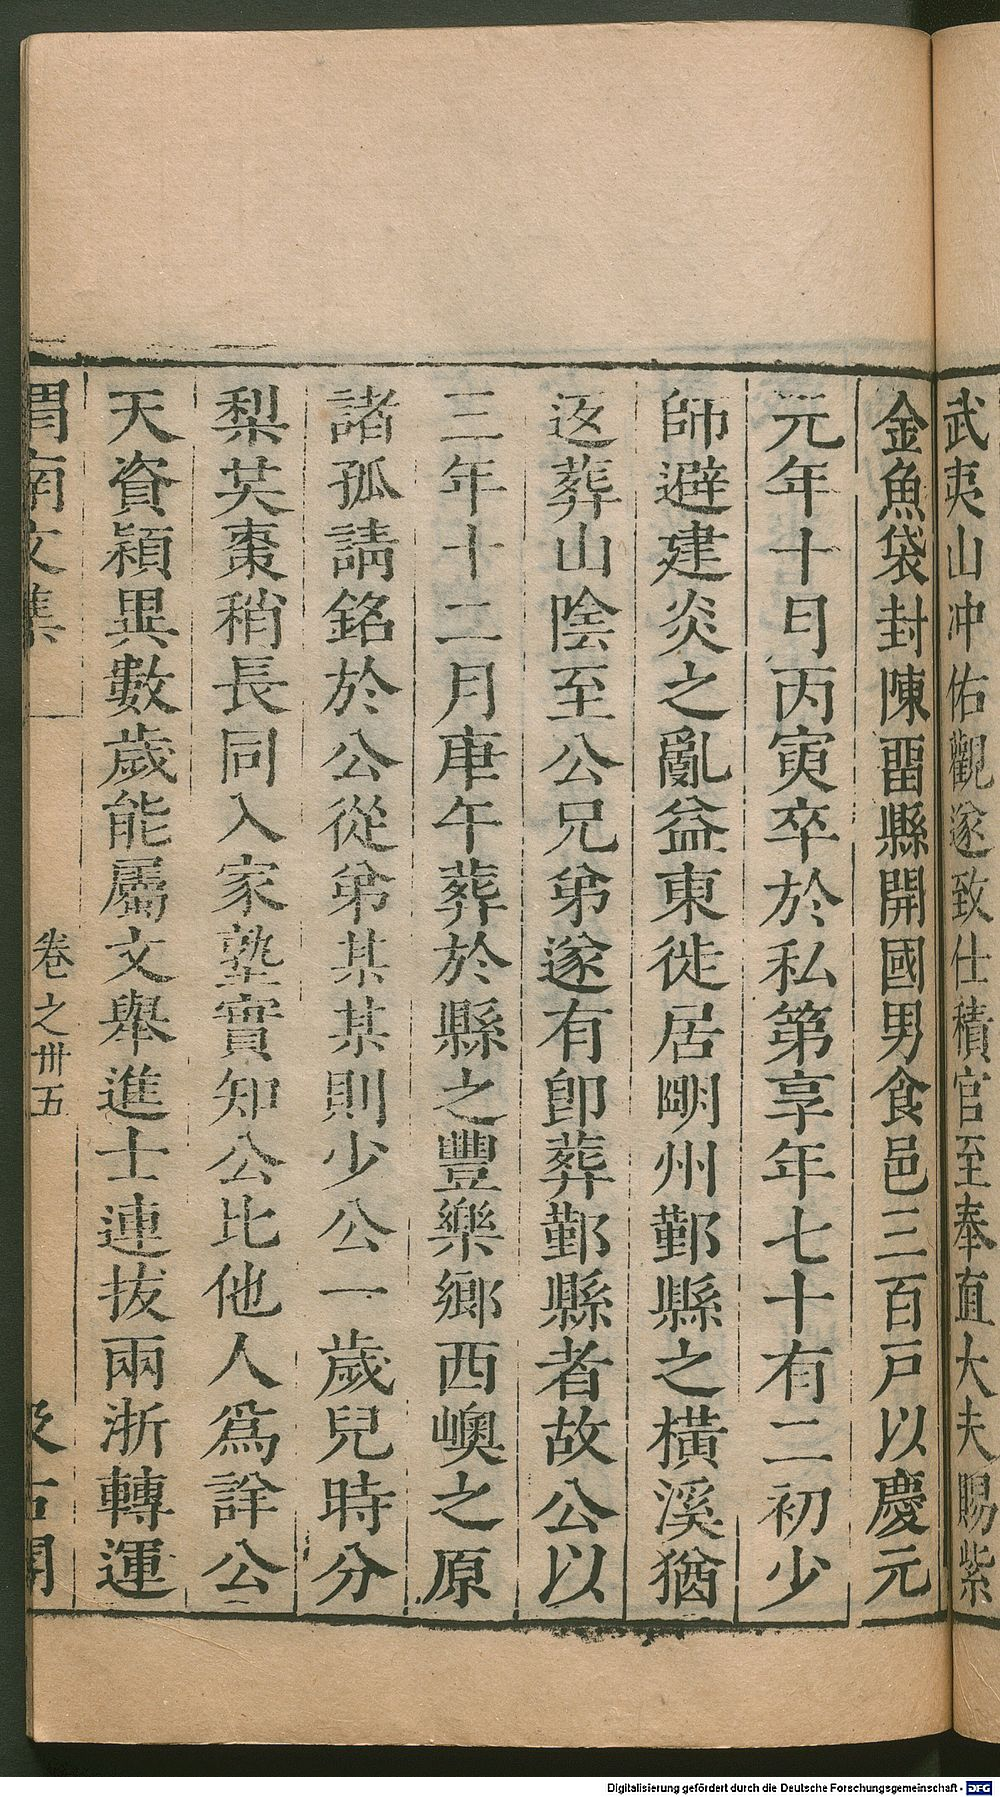 武夷山冲佑觀遂致仕積官至奉直大夫賜紫
金魚袋封陳畱縣開國男食邑三百戸以慶元
元年十月丙寅卒於私第享年七十有二初少
師避建炎之亂益東徙居明州鄞縣之橫溪猶
返葬山陰至公兄弟遂有卽葬鄞縣者故公以
三年十二月庚午葬於縣之豐樂鄉西嶼之原
諸孤請銘於公從弟某某則少公一歲兒時分
梨芡棗稍長同入家塾實知公比他人爲詳公
天資穎異數歲能屬文舉進士連拔兩浙轉運
渭南文集
卷之卅五
汲古閣
Digitalisierung gefördert durch die Deutsche Forschungsgemeinschaft - DFG